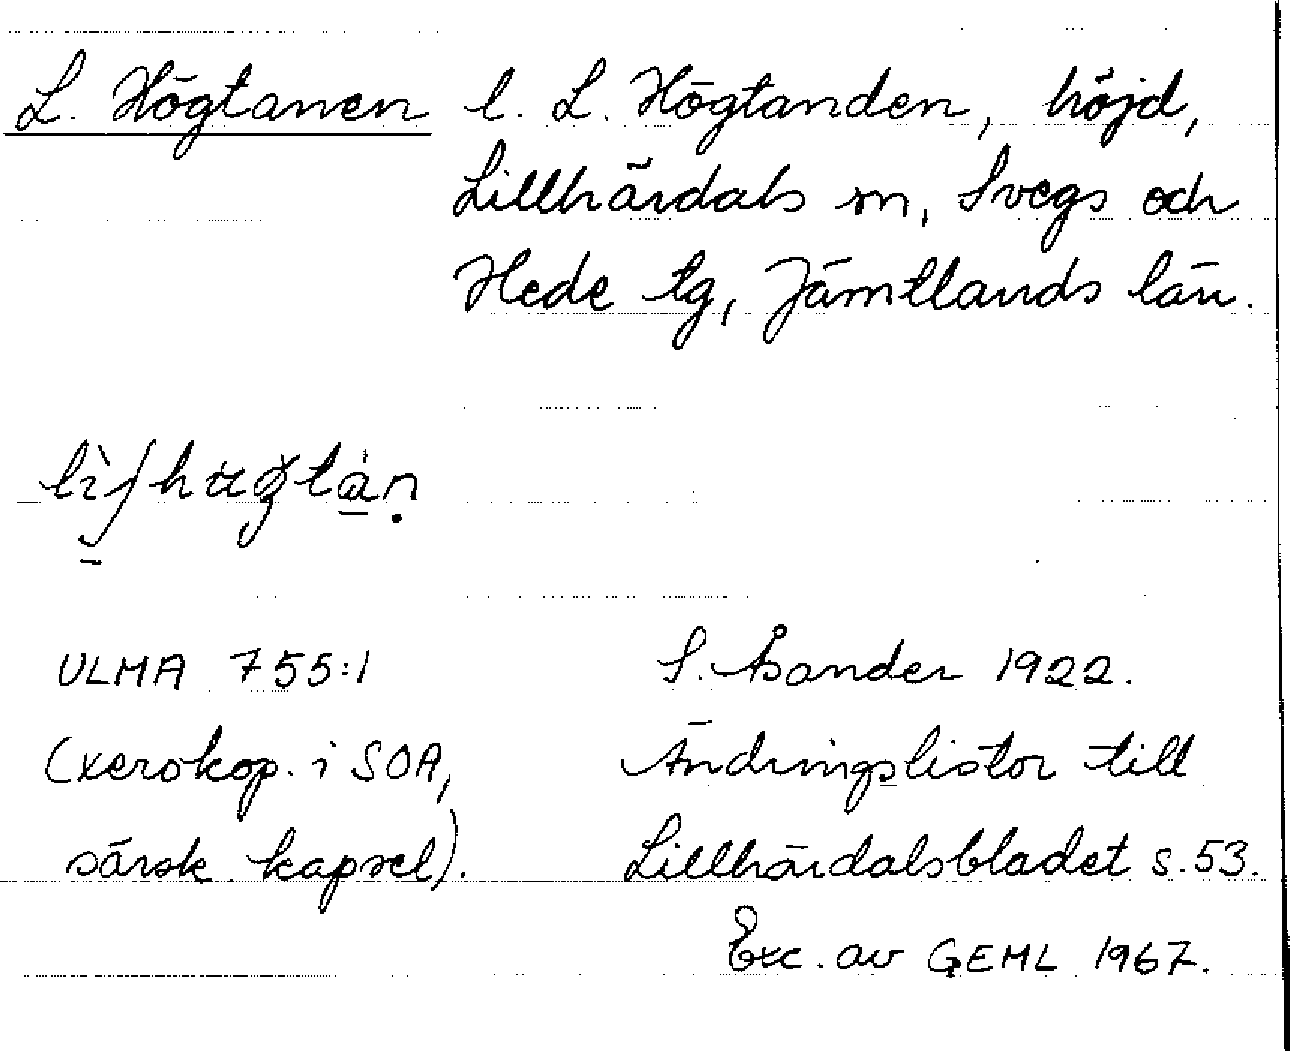 L. Högtanen l. L. Högtanden, höjd,
Lillhärdals sn, Svegs och
Hede tg, Jämtlands län.
ULMA 755:1 S. Åsander 1922.
(xerokop. i SOA, Ändringslistor till
särsk. kapsel). Lillhärdalsbladet s. 53.
Exc. av GEML 1967.